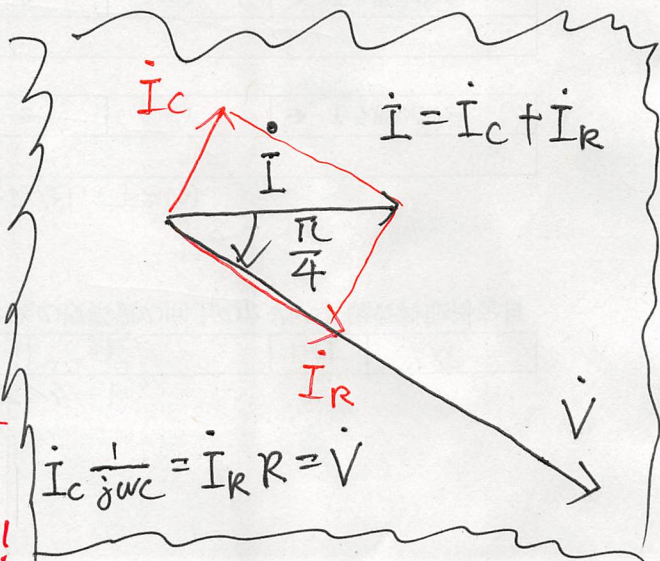 İ_C
İ = İ_C + İ_R
İ
π/4
İ_R
V̇
İ_C 1/jωC = İ_R R = V̇
!